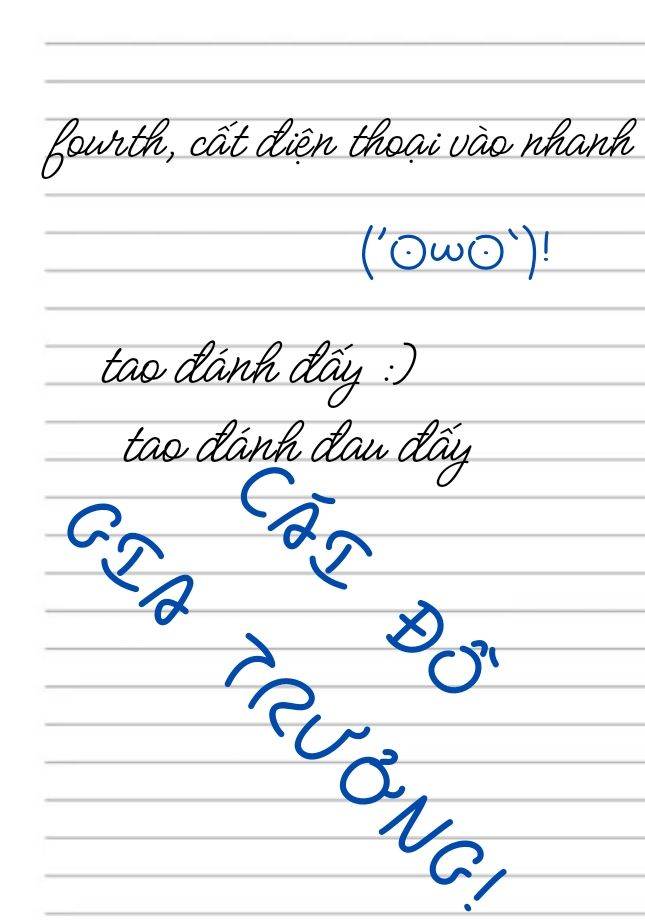 fourth, cất điện thoại vào nhanh
(´ʘωʘ`)!
tao đánh đấy :)
tao đánh đau đấy
CÁI ĐỒ
GIA TRƯỞNG!